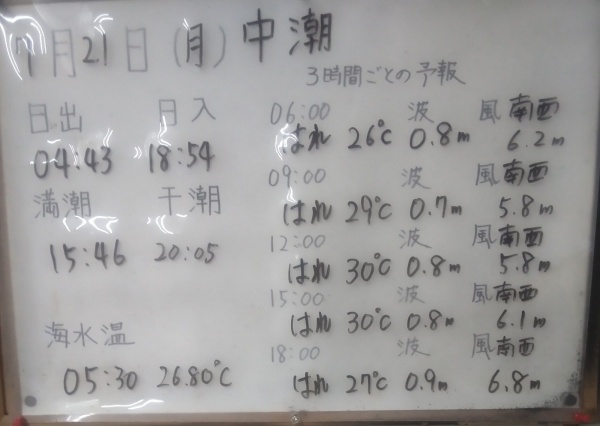 7月21日(月)中潮
日出 日入
04:43 18:54
満潮 干潮
15:46 20:05
海水温
05:30 26.80℃
3時間ごとの予報
06:00 波 風南西
はれ 26℃ 0.8m 6.2m
09:00 波 風南西
はれ 29℃ 0.7m 5.8m
12:00 波 風南西
はれ 30℃ 0.8m 5.8m
15:00 波 風南西
はれ 30℃ 0.8m 6.1m
18:00 波 風南西
はれ 27℃ 0.9m 6.8m